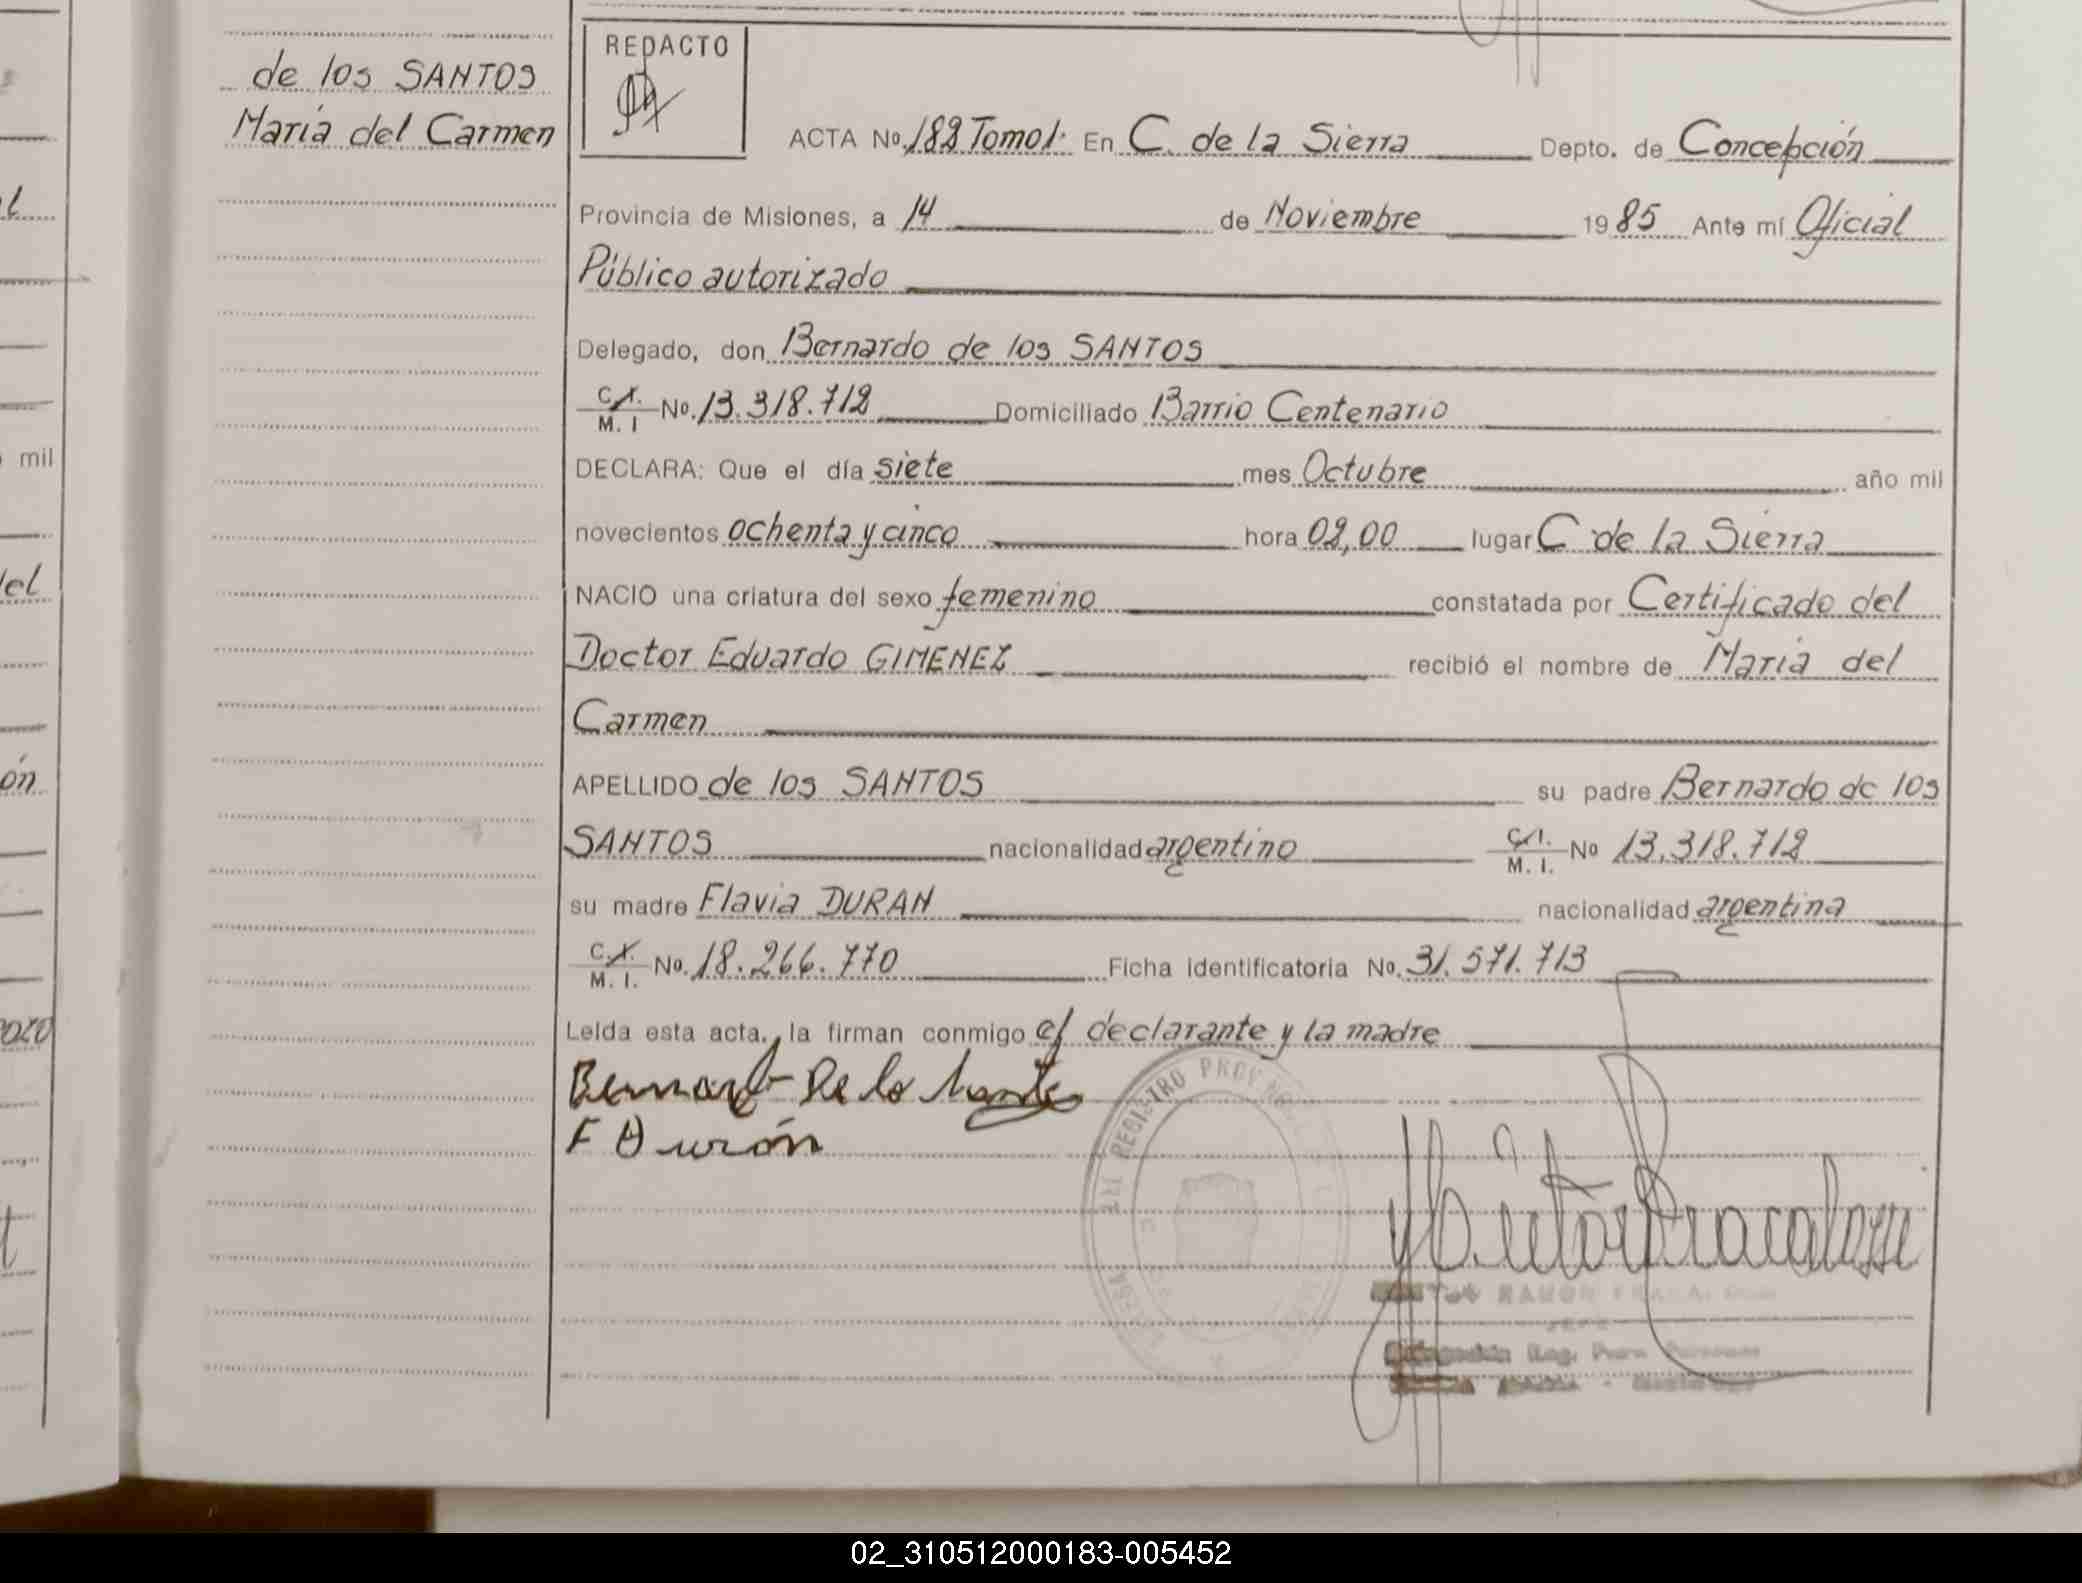 de los SANTOS
María del Carmen
REDACTO
ACTA No. 182 Tomo I. En C. de la Sierra Depto. de Concepción
Provincia de Misiones, a 14 de Noviembre 1985 Ante mí Oficial
Público autorizado
Delegado, don Bernardo de los SANTOS
C.I. M. I No. 13.318.712 Domiciliado Barrio Centenario
DECLARA: Que el día siete mes Octubre año mil
novecientos ochenta y cinco hora 02,00 lugar C de la Sierra
NACIO una criatura del sexo femenino constatada por Certificado del
Doctor Eduardo GIMENEZ recibió el nombre de María del
Carmen
APELLIDO de los SANTOS su padre Bernardo de los
SANTOS nacionalidad argentino C.I. M. I. No 13.318.712
su madre Flavia DURAN nacionalidad argentina
C.I. M. I. No. 18.266.770 Ficha identificatoria No. 31.571.713
Leída esta acta, la firman conmigo el declarante y la madre
Bernardo De lo Santo
F Durán
REGISTRO PROV
RAMON
mil
el
ón
02_310512000183-005452